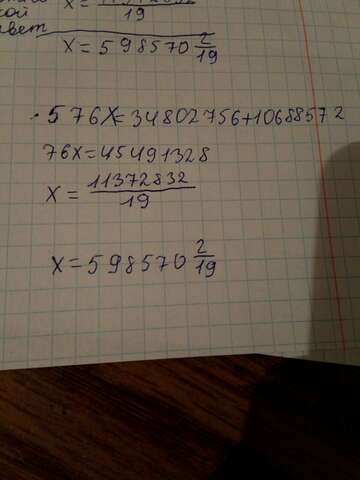 кой
x =
19
x = 598570 2/19
576x=34802756+10688572
76x=45491328
x = 11372832/19
x = 598570 2/19